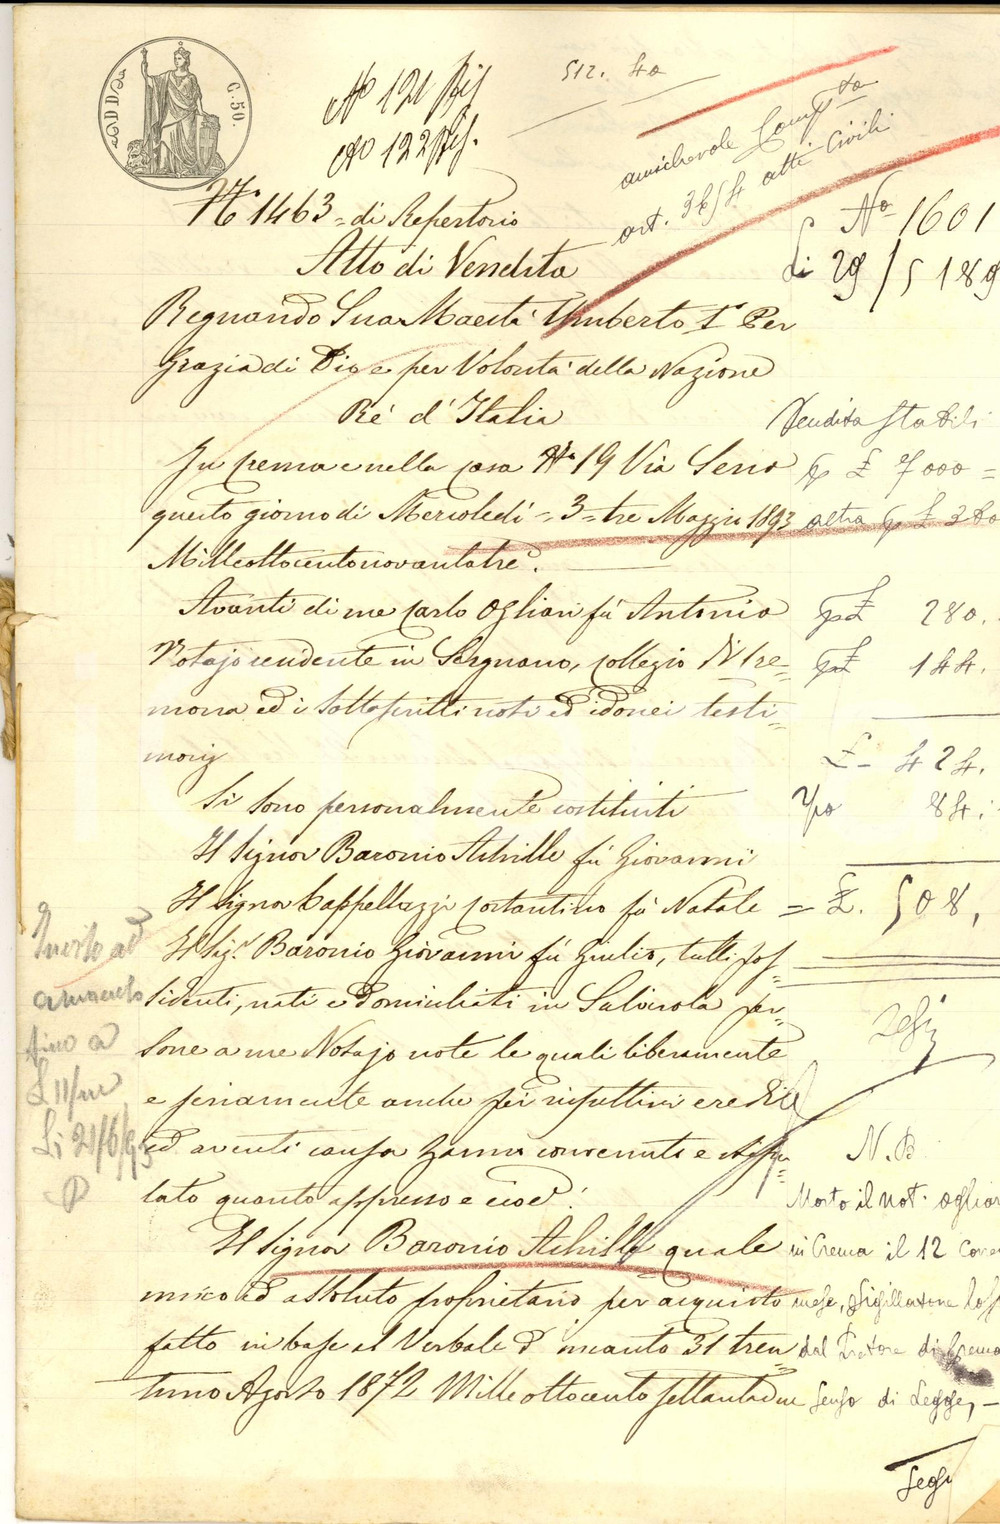 C. 50.
No 121 Bis
No 122 Bis.
512. 40
amichevole Comp.to
art. 3654 atti civili
No 1601
li 29/5 189
N.° 1463 = di Repertorio
Atto di Vendita
Regnando Sua Maestà Umberto I° Per
Grazia di Dio e per Volontà della Nazione
Ré d'Italia
In Crema e nella casa N° 19 Via Serio
questo giorno di Mercoledì = 3 = tre Maggio 1893
Milleottocentonovantatre.
Avanti di me Carlo Ogliari fù Antonio
Notajo residente in Sergnano, Collegio di Cre=
mona ed i sottoscritti noti ed idonei testi=
monj
Si sono personalmente costituiti
Il Signor Baronio Achille fù Giovanni
Il Signor Cappellazzi Costantino fù Natale
Il Sig.r Baronio Giovanni fù Giulio, tutti pos=
sidenti, nati e domiciliati in Salvirola per=
sone a me Notajo note le quali liberamente
e seriamente anche pei rispettivi eredi
ed aventi causa hanno convenuto e stipu=
lato quanto appresso e cioè:
Il Signor Baronio Achille quale
unico ed assoluto proprietario per acquisto
fatto in base al Verbale d'incanto 31 tren=
tuno Agosto 1872 Mille ottocento settantadue
Vendita Stabili
p £ 7000 =
altra p £ 360
p £ 280.
p £ 144.
£ - 424.
2/10 84.
= £. 508,
N.B
Morto il not. Ogliari
in Crema il 12 corr
mese,
dal Pretore di Crema
senso di Legge, -
Segu
Invito ad
aumento
fino a
£ 11/m
Li 21/6/93